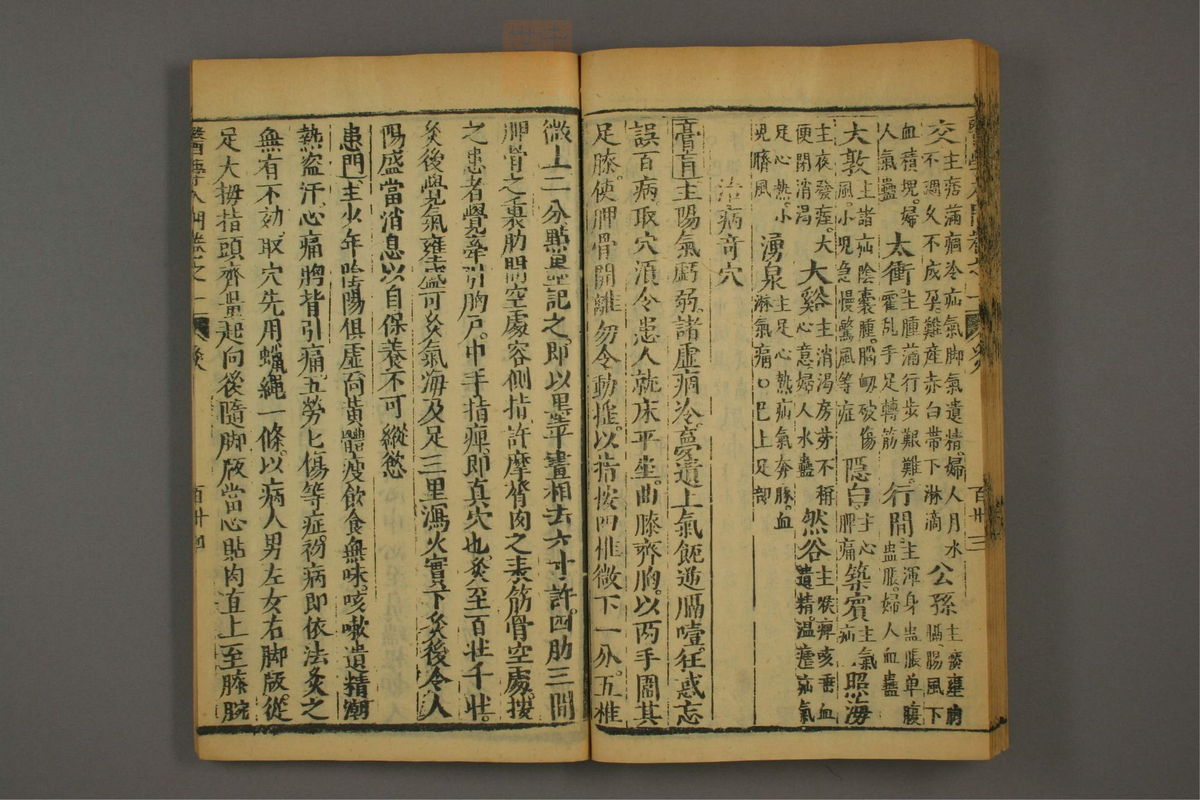 交主病滿痼冷疝氣脚氣遺精婦人月水
不調久不成孕難產赤白帶下淋滴
公孫主痰壅胸
膈腸風下
血積塊婦
人氣蠱
太衝主腫滿行步艱難
霍亂手足轉筋
行間主渾身蠱脹单腹
蠱脹婦人血蠱
大敦主諸疝陰囊腫腦衂破傷
風小児急慢驚風等症
隱白主心
脾痛
築賓主氣
疝
照海
主夜發痙大
便閉消渴
大谿主消渴房劳不稱
心意婦人水蠱
然谷主喉痺咳唾血
遺精温瘧疝氣
足心熱小
児臍風
湧泉主足心熱疝氣奔豚血
淋氣痛○巴上足部
治病奇穴
膏肓主陽氣虧弱諸虛痼冷夢遺上氣呃逆膈噎狂惑忘
誤百病取穴須令患人就床平坐曲膝齊胸以两手圍其
足膝使胛骨開離勿令動摇以指按四椎微下一分五椎
微上二分點墨記之即以墨平畫相去六寸許四肋三間
胛骨之裏肋間空處容側指許摩膂肉之表筋骨空處按
之患者覺牽引胸戶中手指痺即真穴也灸至百壮千壮
灸後覺氣壅盛可灸氣海及足三里瀉火實下灸後令人
陽盛當消息以自保養不可縱慾
患門主少年陰陽俱虛靣黃體瘦飲食無味咳嗽遺精潮
熱盗汗心痛胸背引痛五勞七傷等症初病即依法灸之
無有不効取穴先用蠟繩一條以病人男左女右脚板從
足大拇指頭齊量起向後隨脚板當心貼肉直上至膝腕
醫學入門卷之一
灸
百廿四
百廿三